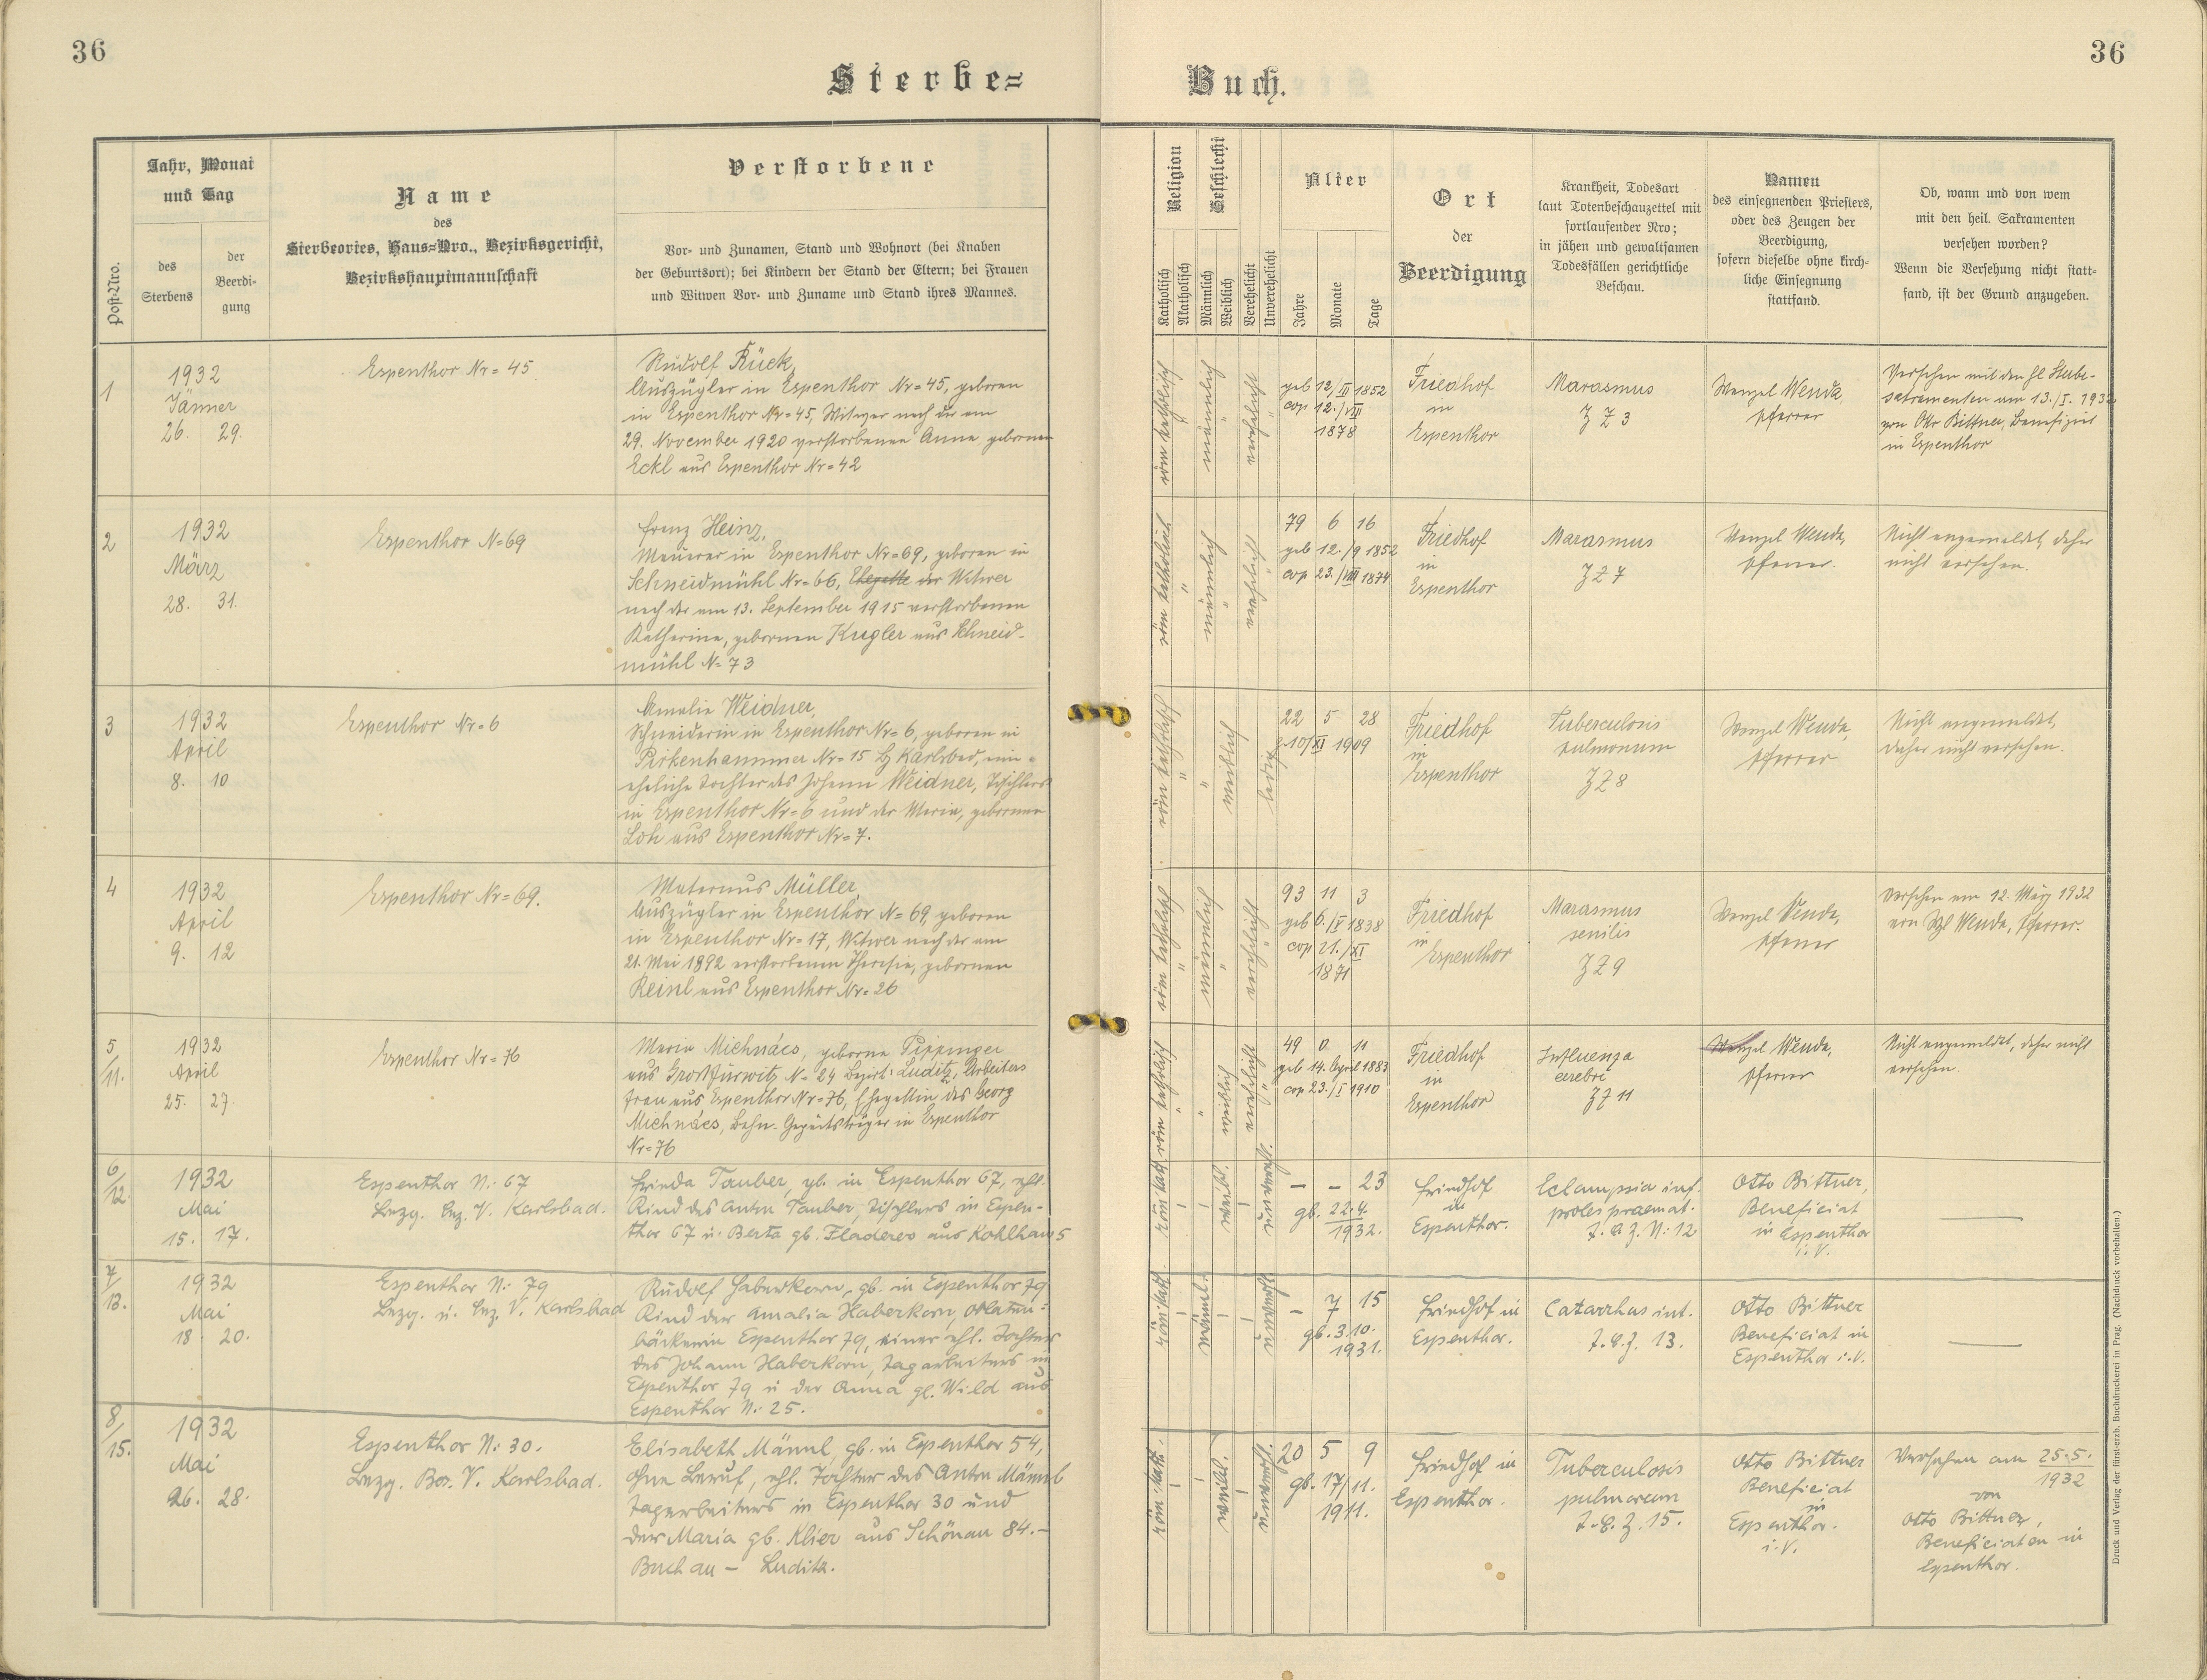 36
Sterbe=
Buch.
36
Post-Nro.
Jahr, Monat
und Tag
des
Sterbens
der
Beerdi-
gung
Name
des
Sterbeortes, Haus=Nro., Bezirksgericht,
Bezirkshauptmannschaft
Verstorbene
Vor- und Zunamen, Stand und Wohnort (bei Knaben
der Geburtsort); bei Kindern der Stand der Eltern; bei Frauen
und Witwen Vor- und Zuname und Stand ihres Mannes.
Religion
Katholisch
Akatholisch
Geschlecht
Männlich
Weiblich
Verehelicht
Unverehelicht
Alter
Jahre
Monate
Tage
Ort
der
Beerdigung
Krankheit, Todesart
laut Totenbeschauzettel mit
fortlaufender Nro;
in jähen und gewaltsamen
Todesfällen gerichtliche
Beschau.
Namen
des einsegnenden Priesters,
oder des Zeugen der
Beerdigung,
sofern dieselbe ohne kirch-
liche Einsegnung
stattfand.
Ob, wann und von wem
mit den heil. Sakramenten
versehen worden?
Wenn die Versehung nicht statt-
fand, ist der Grund anzugeben.
1
1932
Jänner
26. 29.
Espenthor Nr= 45
Rudolf Rück,
Auszügler in Espenthor Nr=45, geboren
in Espenthor Nr=45, Witwer nach der am
29. November 1920 verstorbenen Anna gebornen
Eckl aus Espenthor Nr=42
röm katholisch
männlich
verehelicht
geb 12/II 1852
cop 12./VII
1878
Friedhof
in
Espenthor
Marasmus
Z Z 3
Wenzel Wenda,
Pfarrer
Versehen mit den hl Sterbe-
sakramenten am 13./I. 1932
von Otto Bittner, Benefiziat
in Espenthor
2
1932
März
28. 31.
Espenthor N=69
Franz Heinz,
Maurer in Espenthor Nr=69, geboren in
Schneidmühl Nr=66, Ehegatte der Witwer
nach der am 13. September 1915 verstorbenen
Katharina, gebornen Kugler aus Schneid-
mühl N=73
röm katholisch
männlich
verehelicht
79 6 16
geb 12./9 1852
cop 23./VIII 1874
Friedhof
in
Espenthor
Marasmus
Z Z 7
Wenzel Wenda,
Pfarrer.
Nicht angemeldet, daher
nicht versehen.
3
1932
April
8. 10
Espenthor Nr=6
Amalia Weidner,
Schneiderin in Espenthor Nr=6, geboren in
Pirkenhammer Nr=15 Karlsbad,
eheliche Tochter des Johann Weidner, Tischlers
in Espenthor Nr=6 und der Maria, gebornen
Loh aus Espenthor Nr=7.
röm katholisch
weiblich
ledig
22 5 28
g. 10/XI 1909
Friedhof
in
Espenthor
Tuberculosis
pulmonum
Z Z 8
Wenzel Wenda,
Pfarrer
Nicht angemeldet,
daher nicht versehen.
4
1932
April
9. 12
Espenthor Nr=69.
Maternus Müller,
Auszügler in Espenthor N=69, geboren
in Espenthor Nr=17, Witwer nach der am
21. Mai 1892 verstorbenen Theresia, gebornen
Reinl aus Espenthor Nr=26
röm katholisch
männlich
verehelicht
93 11 3
geb 6./V 1838
cop 21./XI
1871
Friedhof
in
Espenthor
Marasmus
senilis
Z Z 9
Wenzel Wenda,
Pfarrer
Versehen am 12. März 1932
von Wzl Wenda, Pfarrer.
5
/11.
1932
April
25. 27.
Espenthor Nr=76
Maria Michnács, geborne Pippinger
aus N=24 Bezirk Luditz, Arbeiters
frau aus Espenthor Nr=76, Ehegattin des Georg
Michnács, Bahn-Gepäcksträger in Espenthor
Nr=76
röm katholisch
weiblich
verehelicht
49 0 11
geb 14. April 1883
cop 23./I 1910
Friedhof
in
Espenthor
Influenza
cerebri
Z Z 11
Wenzel Wenda,
Pfarrer
Nicht angemeldet, daher nicht
versehen.
6
/12.
1932
Mai
15. 17.
Espenthor N: 67
Bezg. Bez. V. Karlsbad.
Frieda Tauber, gb. in Espenthor 67, ehl.
Kind des Anton Tauber, Tischlers in Espen-
thor 67 u. Berta gb. Fladerer aus Kohlhau 5
röm. kath.
weibl.
unverehl.
– – 23
gb. 22.4.
1932.
Friedhof
in
Espenthor.
Eclampsia inf.
proles praemat.
T.B.Z. N: 12
Otto Bittner,
Beneficiat
in Espenthor
i. V.
—
7
/13.
1932
Mai
18. 20.
Espenthor N: 79
Bezg. u. Bez. V. Karlsbad
Rudolf Haberkorn, gb. in Espenthor 79
Kind der Amalia Haberkorn, Oblaten=
bäckerin Espenthor 79, einer ehl. Tochter
des Johann Haberkorn, Tagarbeiters in
Espenthor 79 u der Anna gb. Wild aus
Espenthor N: 25.
röm. kath.
männl.
unverehl.
– 7 15
gb. 3.10.
1931.
Friedhof in
Espenthor.
Catarrhus int.
T.B.Z. 13.
Otto Bittner
Beneficiat in
Espenthor i.V.
—
8
/15.
1932
Mai
26. 28.
Espenthor N: 30.
Bezg. Bez. V. Karlsbad.
Elisabeth Männl, gb. in Espenthor 54,
ohne Beruf, ehl. Tochter des Anton Männl
Tagarbeiters in Espenthor 30 und
der Maria gb. Klier aus Schönau 84.-
Buchau – Luditz.
röm. kath.
weibl.
unverehl.
20 5 9
gb. 17/11.
1911.
Friedhof in
Espenthor.
Tuberculosis
pulmorum
T.B.Z. 15.
Otto Bittner
Beneficiat
in
Espenthor.
i.V.
Versehen am 25.5.
1932
von
Otto Bittner,
Beneficiaten in
Espenthor.
Druck und Verlag der fürst-erzb. Buchdruckerei in Prag. (Nachdruck vorbehalten.)